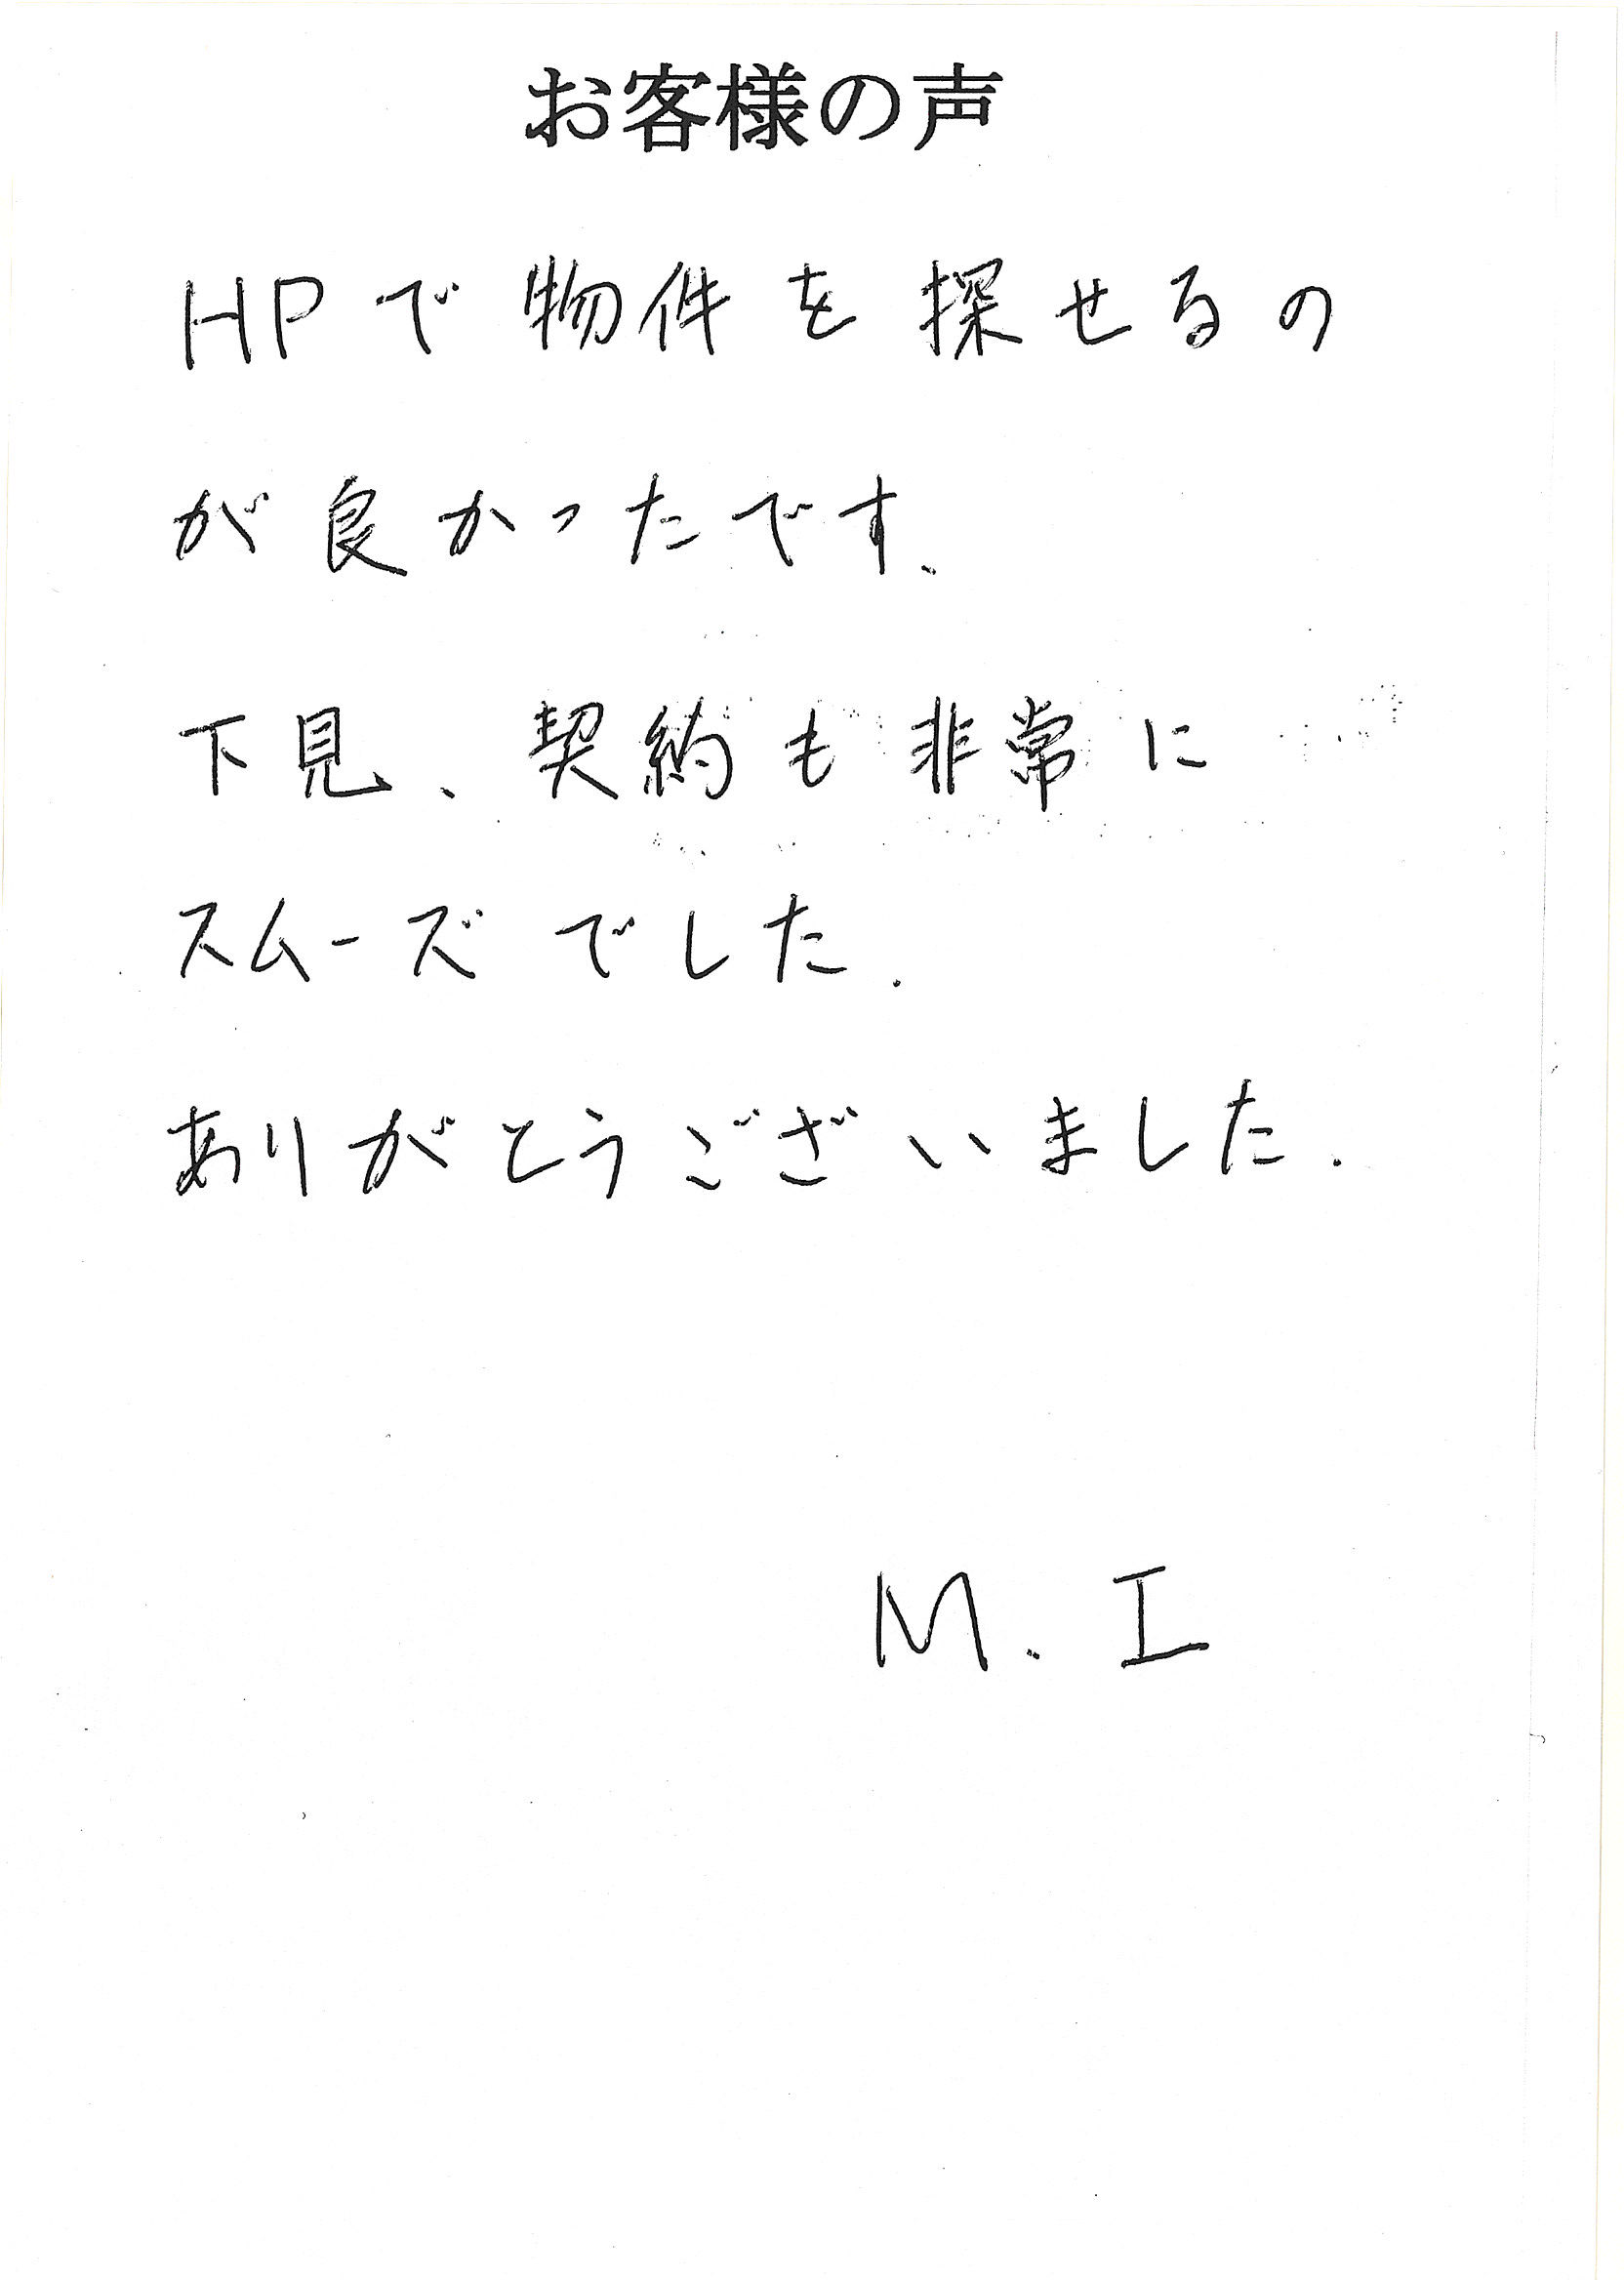 お客様の声
HPで物件を探せるの
が良かったです、
下見、契約も非常に
スムーズでした.
ありがとうございました.
M.I